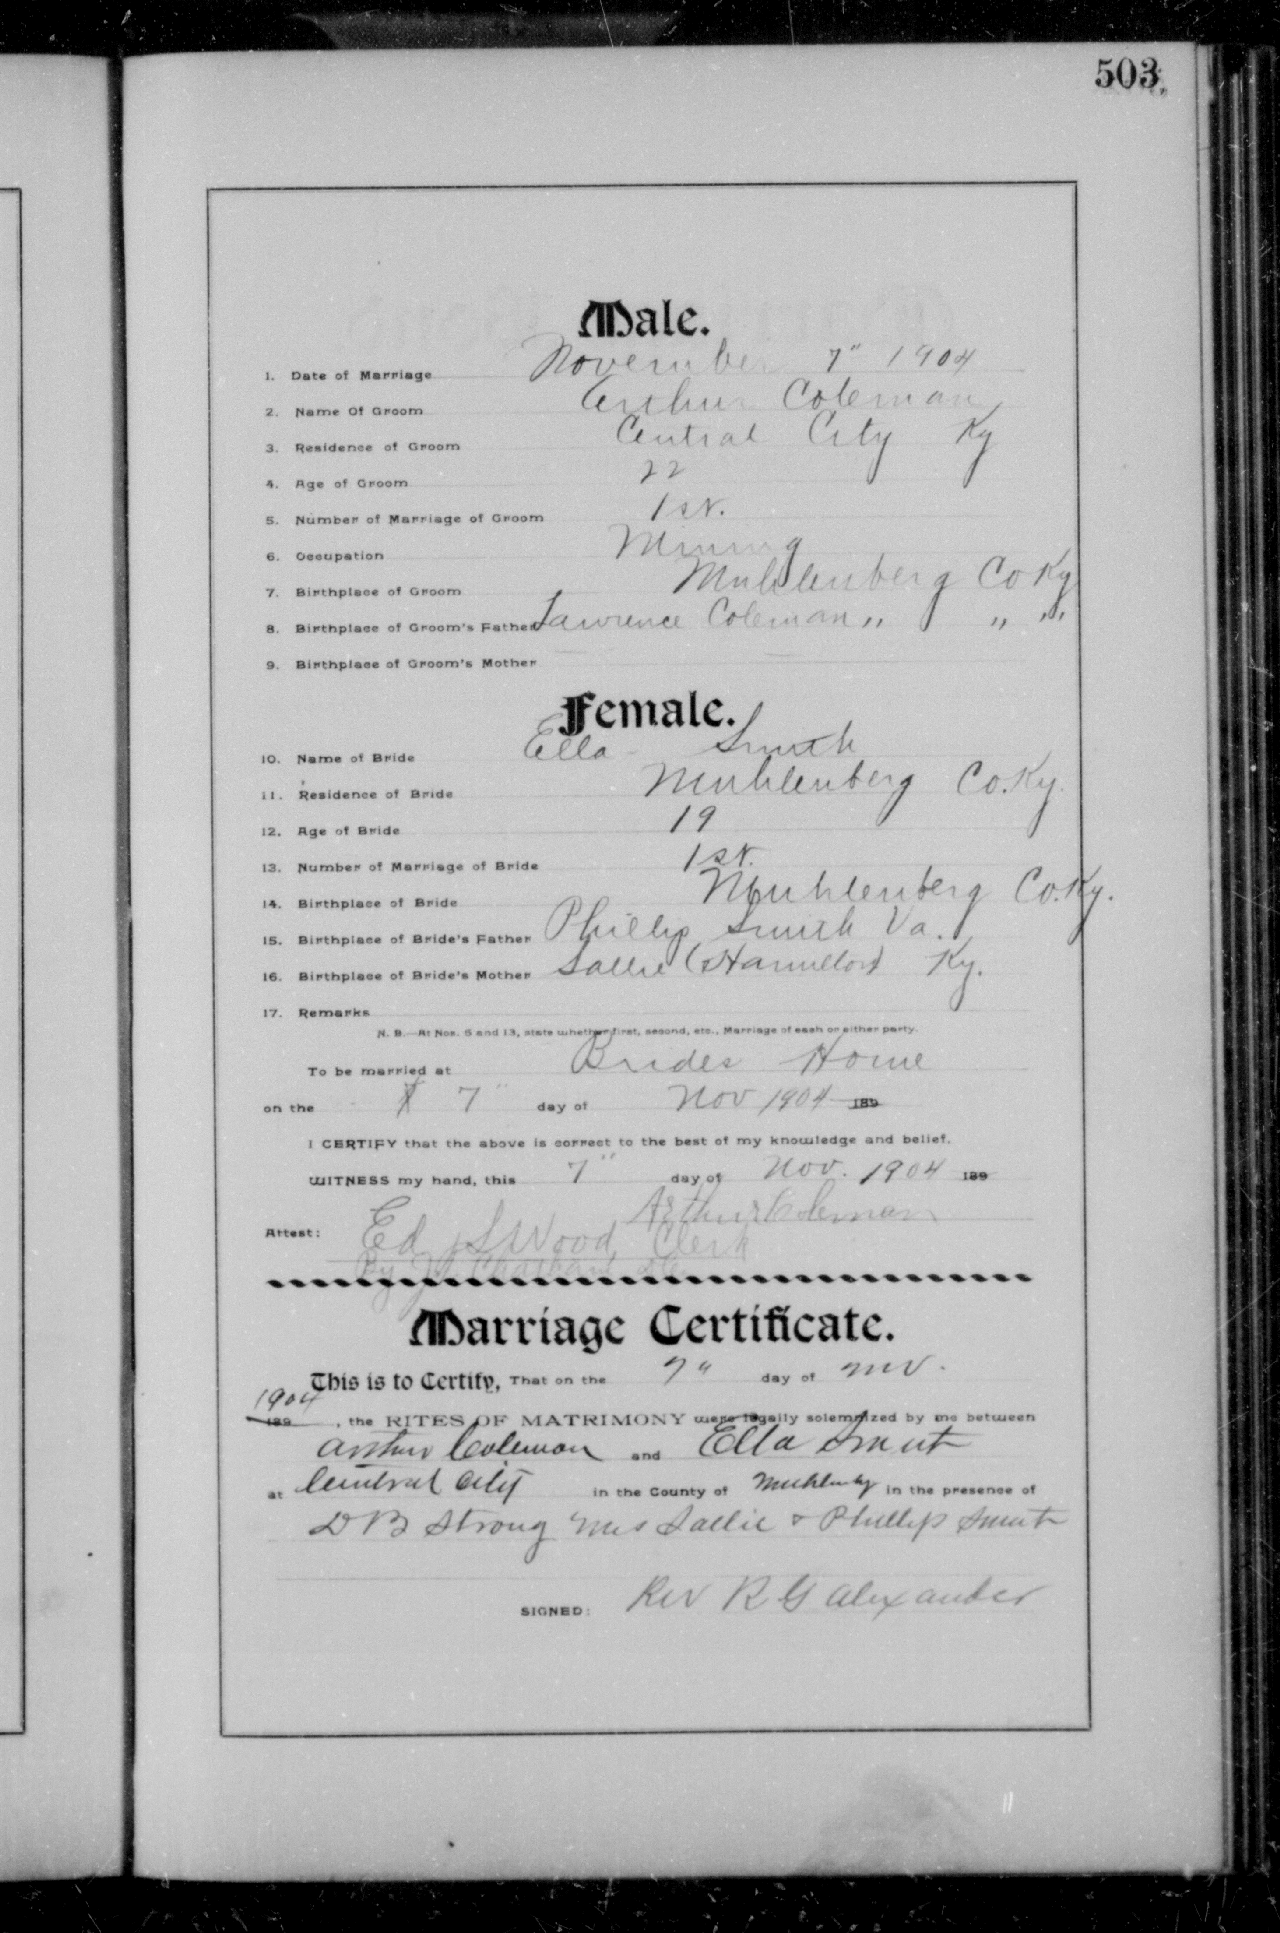 503
Male.
1. Date of Marriage November 7" 1904
2. Name Of Groom Arthur Coleman
3. Residence of Groom Central City Ky
4. Age of Groom 22
5. Number of Marriage of Groom 1st.
6. Occupation Mining
7. Birthplace of Groom Muhlenberg Co Ky
8. Birthplace of Groom's Father Lawrence Coleman " " "
9. Birthplace of Groom's Mother
Female.
10. Name of Bride Ella Smith
11. Residence of Bride Muhlenberg Co. Ky.
12. Age of Bride 19
13. Number of Marriage of Bride 1st.
14. Birthplace of Bride Muhlenberg Co. Ky.
15. Birthplace of Bride's Father Phillip Smith Va.
16. Birthplace of Bride's Mother Sallie (Hamilton) Ky.
17. Remarks
N. B.—At Nos. 5 and 13, state whether first, second, etc., Marriage of each or either party.
To be married at Brides Home
on the 7" day of Nov 1904 189
I CERTIFY that the above is correct to the best of my knowledge and belief.
WITNESS my hand, this 7" day of Nov. 1904 189
Arthur Coleman
Attest: Ed S Wood Clerk
By
Marriage Certificate.
This is to Certify, That on the 7" day of Nov.
1904
189 , the RITES OF MATRIMONY were legally solemnized by me between
Arthur Coleman and Ella Smith
at Central City in the County of Muhlenberg in the presence of
D B Strong Mrs Sallie & Phillip Smith
SIGNED: Rev R G Alexander